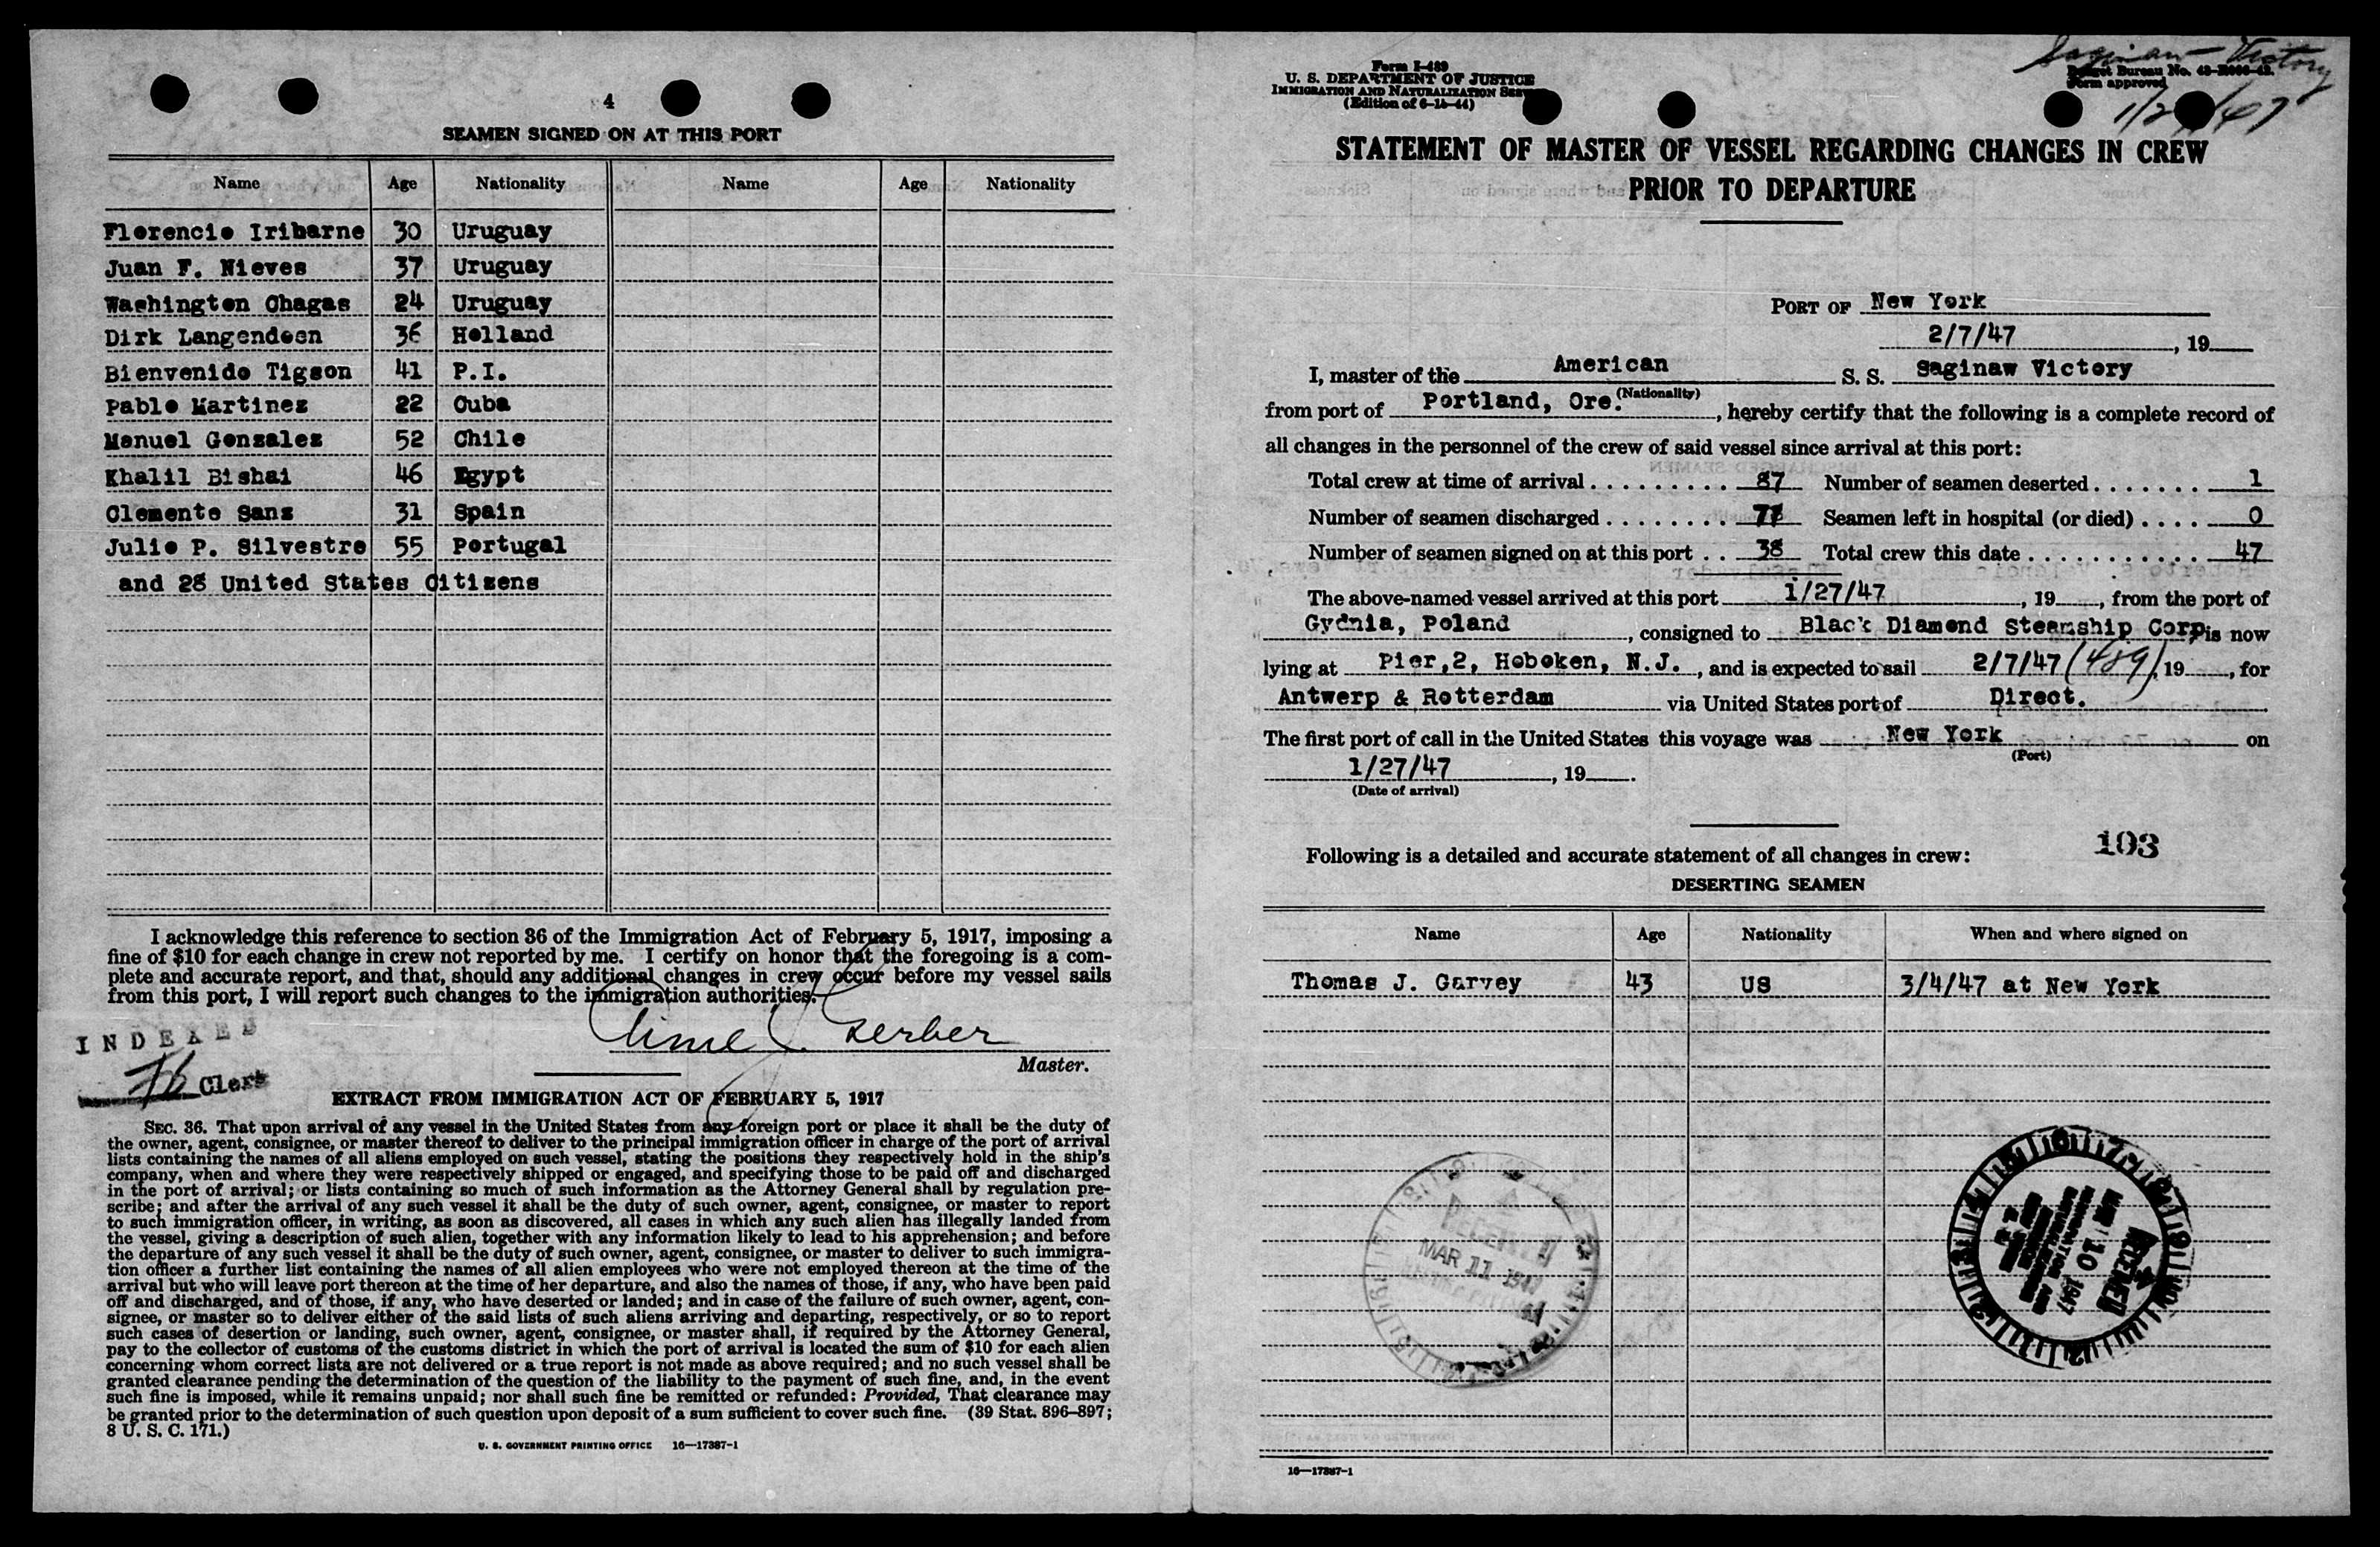 4
SEAMEN SIGNED ON AT THIS PORT
Name Age Nationality Name Age Nationality
Florencio Iribarne 30 Uruguay
Juan F. Nieves 37 Uruguay
Washington Chagas 24 Uruguay
Dirk Langendoen 36 Holland
Bienvenido Tigson 41 P.I.
Pablo Martinez 22 Cuba
Manuel Gonzalez 52 Chile
Khalil Bishai 46 Egypt
Clemente Sanz 31 Spain
Julio P. Silvestre 55 Portugal
and 28 United States Citizens
I acknowledge this reference to section 36 of the Immigration Act of February 5, 1917, imposing a
fine of $10 for each change in crew not reported by me. I certify on honor that the foregoing is a com-
plete and accurate report, and that, should any additional changes in crew occur before my vessel sails
from this port, I will report such changes to the immigration authorities.
Gerber
Master.
INDEXED
Clerk
EXTRACT FROM IMMIGRATION ACT OF FEBRUARY 5, 1917
SEC. 36. That upon arrival of any vessel in the United States from any foreign port or place it shall be the duty of
the owner, agent, consignee, or master thereof to deliver to the principal immigration officer in charge of the port of arrival
lists containing the names of all aliens employed on such vessel, stating the positions they respectively hold in the ship's
company, when and where they were respectively shipped or engaged, and specifying those to be paid off and discharged
in the port of arrival; or lists containing so much of such information as the Attorney General shall by regulation pre-
scribe; and after the arrival of any such vessel it shall be the duty of such owner, agent, consignee, or master to report
to such immigration officer, in writing, as soon as discovered, all cases in which any such alien has illegally landed from
the vessel, giving a description of such alien, together with any information likely to lead to his apprehension; and before
the departure of any such vessel it shall be the duty of such owner, agent, consignee, or master to deliver to such immigra-
tion officer a further list containing the names of all alien employees who were not employed thereon at the time of the
arrival but who will leave port thereon at the time of her departure, and also the names of those, if any, who have been paid
off and discharged, and of those, if any, who have deserted or landed; and in case of the failure of such owner, agent, con-
signee, or master so to deliver either of the said lists of such aliens arriving and departing, respectively, or so to report
such cases of desertion or landing, such owner, agent, consignee, or master shall, if required by the Attorney General,
pay to the collector of customs of the customs district in which the port of arrival is located the sum of $10 for each alien
concerning whom correct lists are not delivered or a true report is not made as above required; and no such vessel shall be
granted clearance pending the determination of the question of the liability to the payment of such fine, and, in the event
such fine is imposed, while it remains unpaid; nor shall such fine be remitted or refunded: Provided, That clearance may
be granted prior to the determination of such question upon deposit of a sum sufficient to cover such fine. (39 Stat. 896–897;
8 U. S. C. 171.)
U. S. GOVERNMENT PRINTING OFFICE 16—17387-1
Form I-489
U. S. DEPARTMENT OF JUSTICE
IMMIGRATION AND NATURALIZATION
(Edition of 6-15-44)
Saginaw Victory
Budget Bureau No.
Form approved
STATEMENT OF MASTER OF VESSEL REGARDING CHANGES IN CREW
PRIOR TO DEPARTURE
PORT OF New York
2/7/47, 19
I, master of the American S. S. Saginaw Victory
(Nationality)
from port of Portland, Ore., hereby certify that the following is a complete record of
all changes in the personnel of the crew of said vessel since arrival at this port:
Total crew at time of arrival 87 Number of seamen deserted 1
Number of seamen discharged 77 Seamen left in hospital (or died) 0
Number of seamen signed on at this port 38 Total crew this date 47
The above-named vessel arrived at this port 1/27/47, 19, from the port of
Gydnia, Poland, consigned to Black Diamond Steamship Corp, is now
lying at Pier,2, Hoboken, N.J., and is expected to sail 2/7/47 (489), 19, for
Antwerp & Rotterdam via United States port of Direct.
The first port of call in the United States this voyage was New York on
(Port)
1/27/47, 19.
(Date of arrival)
103
Following is a detailed and accurate statement of all changes in crew:
DESERTING SEAMEN
Name Age Nationality When and where signed on
Thomas J. Garvey 43 US 3/4/47 at New York
RECEIVED
MAR 11 1947
RECEIVED
MAR 10 1947
16—17387-1